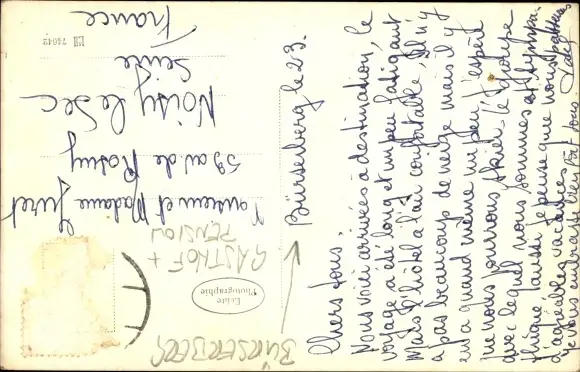 Bürserberg le 23.
Chers tous!
Nous voici arrivées à destination, le
voyage a été long et un peu fatigant
mais l'hôtel a l'air confortable, il n'y
a pas beaucoup de neige mais il y
en a quand même un peu l'esprit
que nous pourrons skier. Le groupe
avec lequel nous sommes est sympa-
thique aussi je pense que nous passerons
d'agréables vacances
je vous embrasse bien fort tous.
Monsieur et Madame Juret
59 av. de Rosny
Noisy le Sec
Seine
France
Echte
Photographie
74642
BÜRSERBERG
GASTHOF +
PENSION